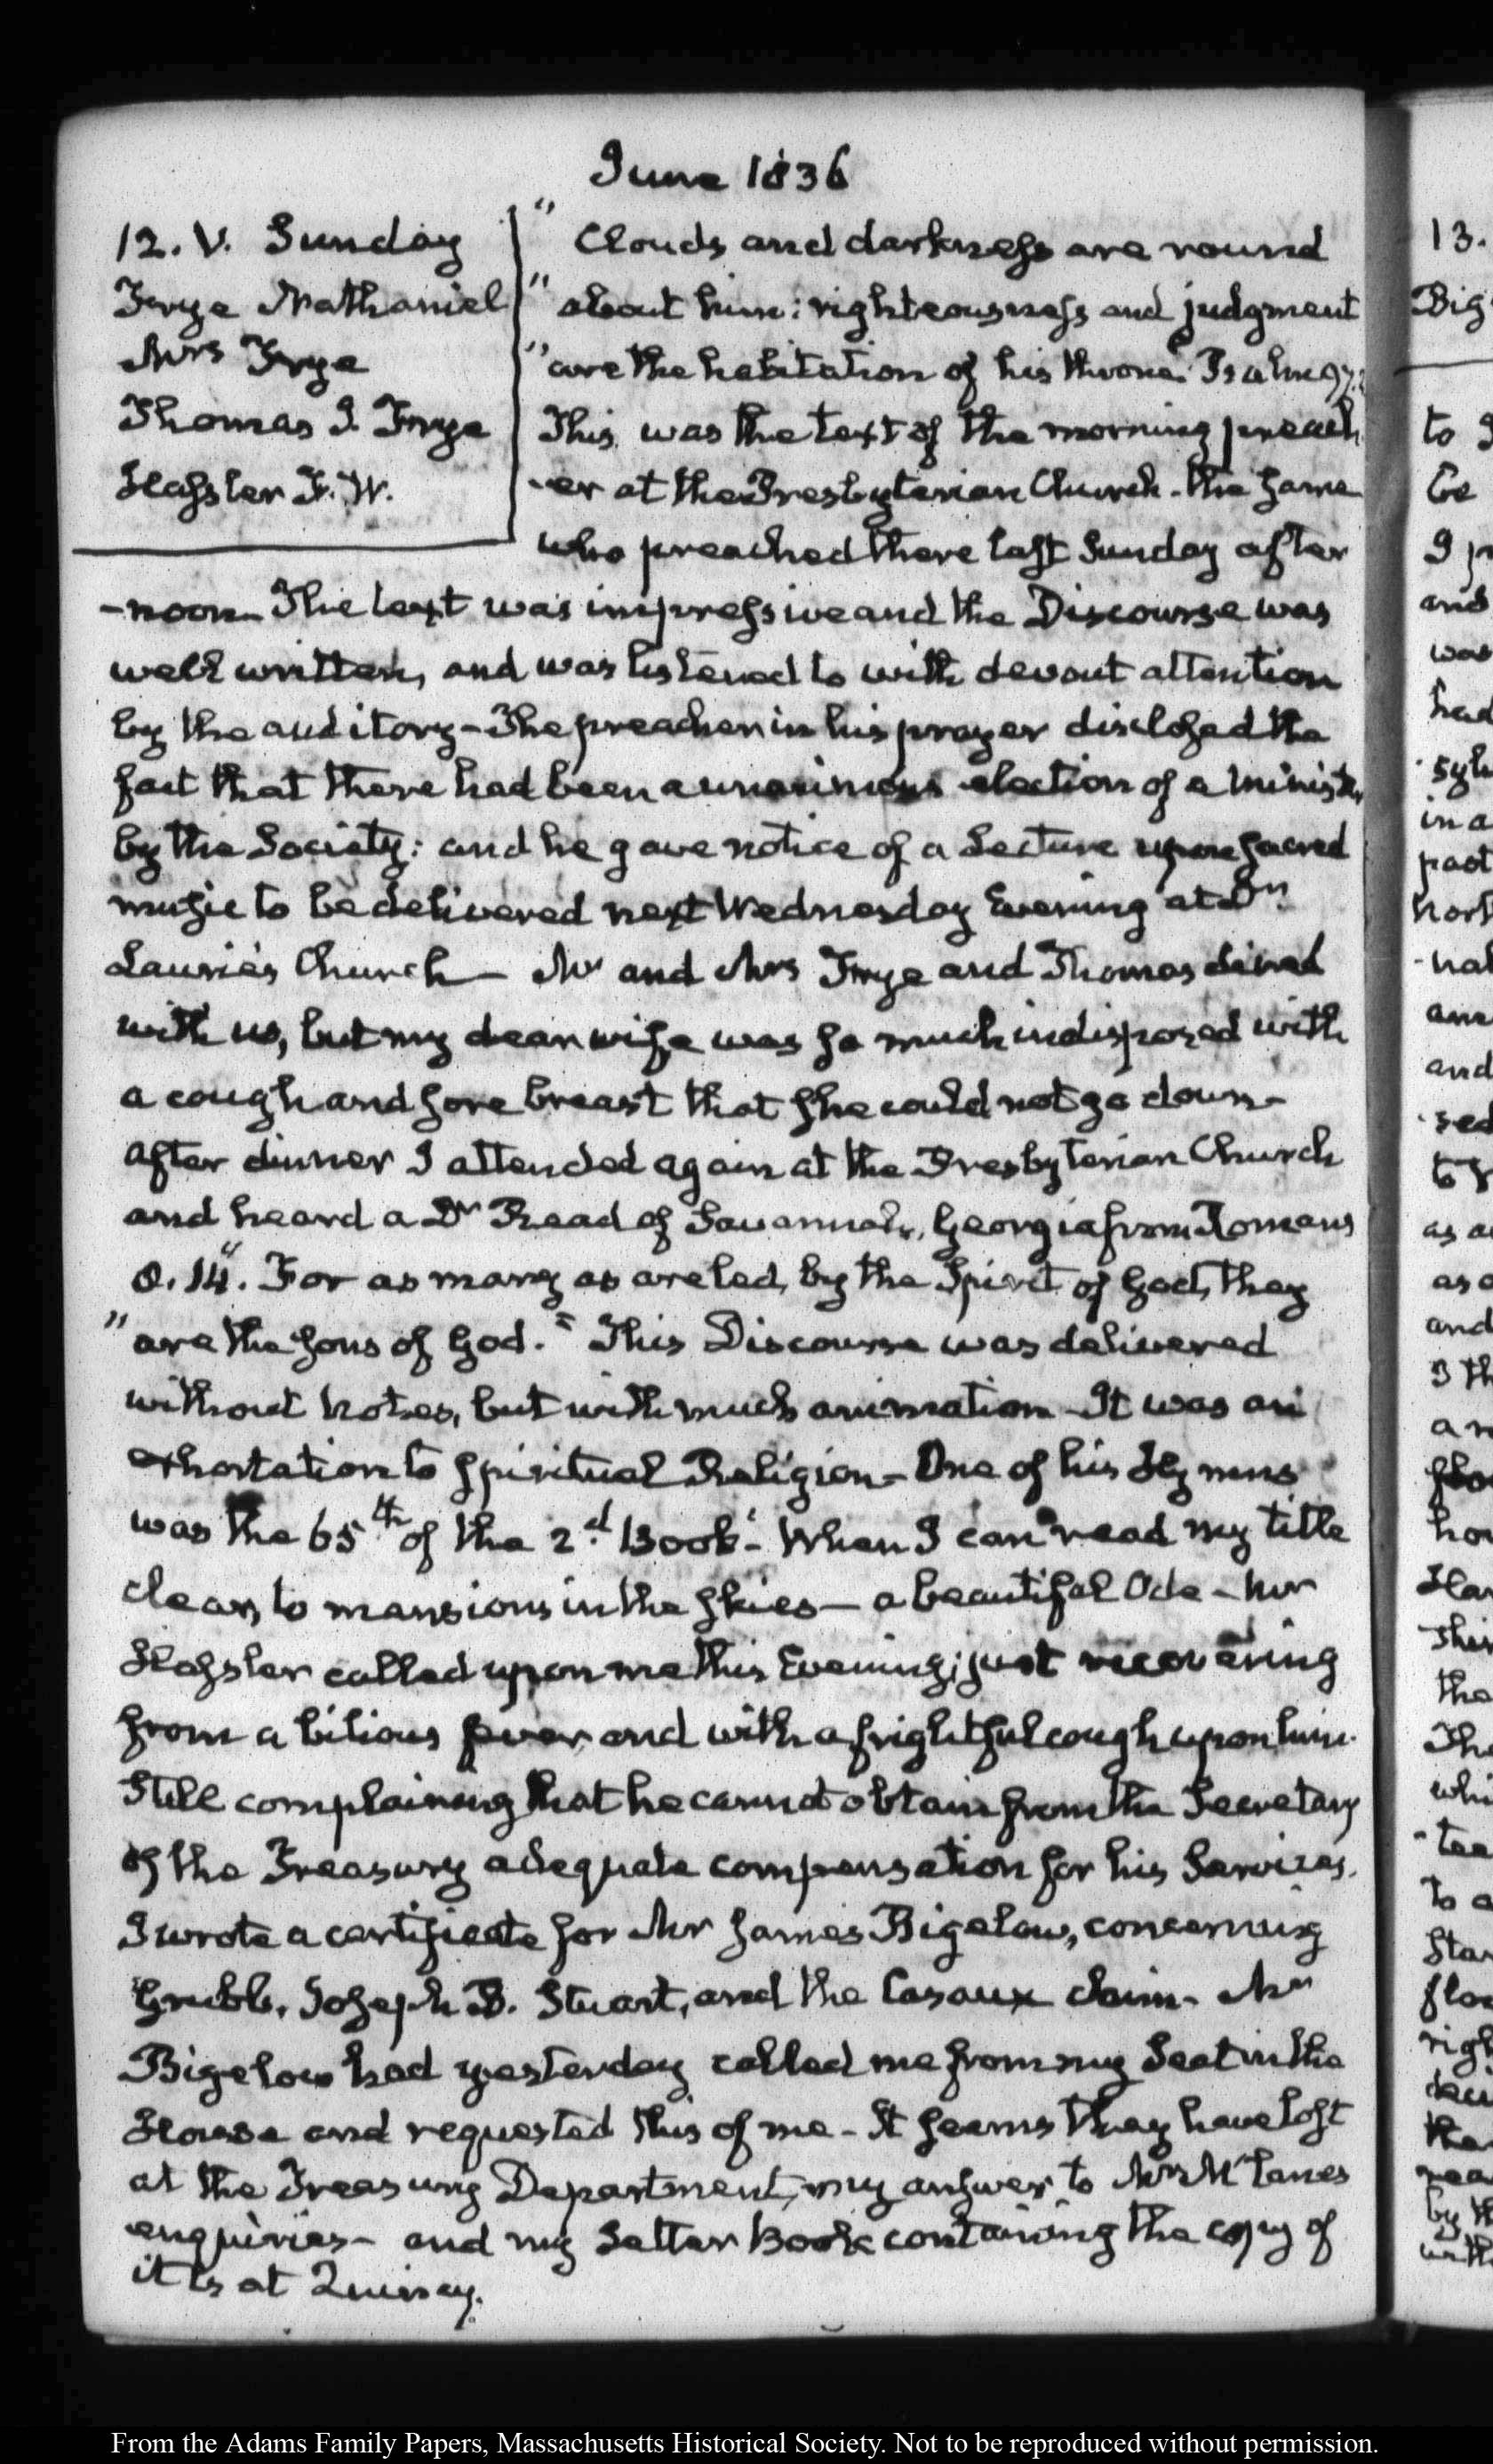 June 1836
12. V. Sunday
Frye Nathaniel
Mrs Frye
Thomas J. Frye
Hassler F. W.
" Clouds and darkness are round
" about him: righteousness and judgment
" are the habitation of his throne" Psalm 97:2
This was the text of the morning preach
-er at the Presbyterian Church - the same
who preached there last Sunday after
-noon - The text was impressive and the Discourse was
well written, and was listened to with devout attention
by the auditory - The preacher in his prayer disclosed the
fact that there had been a unanimous election of a Minister
by the Society: and he gave notice of a Lecture upon sacred
music to be delivered next Wednesday Evening at Dr.
Laurie's Church - Mr and Mrs Frye and Thomas dined
with us, but my dear wife was so much indisposed with
a cough and sore breast that she could not go down -
After dinner I attended again at the Presbyterian Church
and heard a Dr Read of Savannah, Georgia from Romans
8. 14. "For as many as are led, by the Spirit of God, they
" are the sons of God." This Discourse was delivered
without notes, but with much animation - It was an
exhortation to spiritual Religion - One of his Hymns
was the 65th of the 2d Book - When I can read my title
clear, to mansions in the skies - a beautiful Ode - Mr
Hassler called upon me this Evening; just recovering
from a bilious fever and with a frightful cough upon him.
Still complaining that he cannot obtain from the Secretary
of the Treasury adequate compensation for his Services.
I wrote a certificate for Mr James Bigelow, concerning
Grubb, Joseph B. Stuart, and the Cazaux claim - Mr
Bigelow had yesterday called me from my Seat in the
House and requested this of me - It seems they have lost
at the Treasury Department, my answer to Mr McLanes
enquiries - and my Letter Book containing the copy of
it is at Quincy.
13.
Big
to
be
and
was
had
in a
past
and
as a
and
the
whi
to a
by th
From the Adams Family Papers, Massachusetts Historical Society. Not to be reproduced without permission.